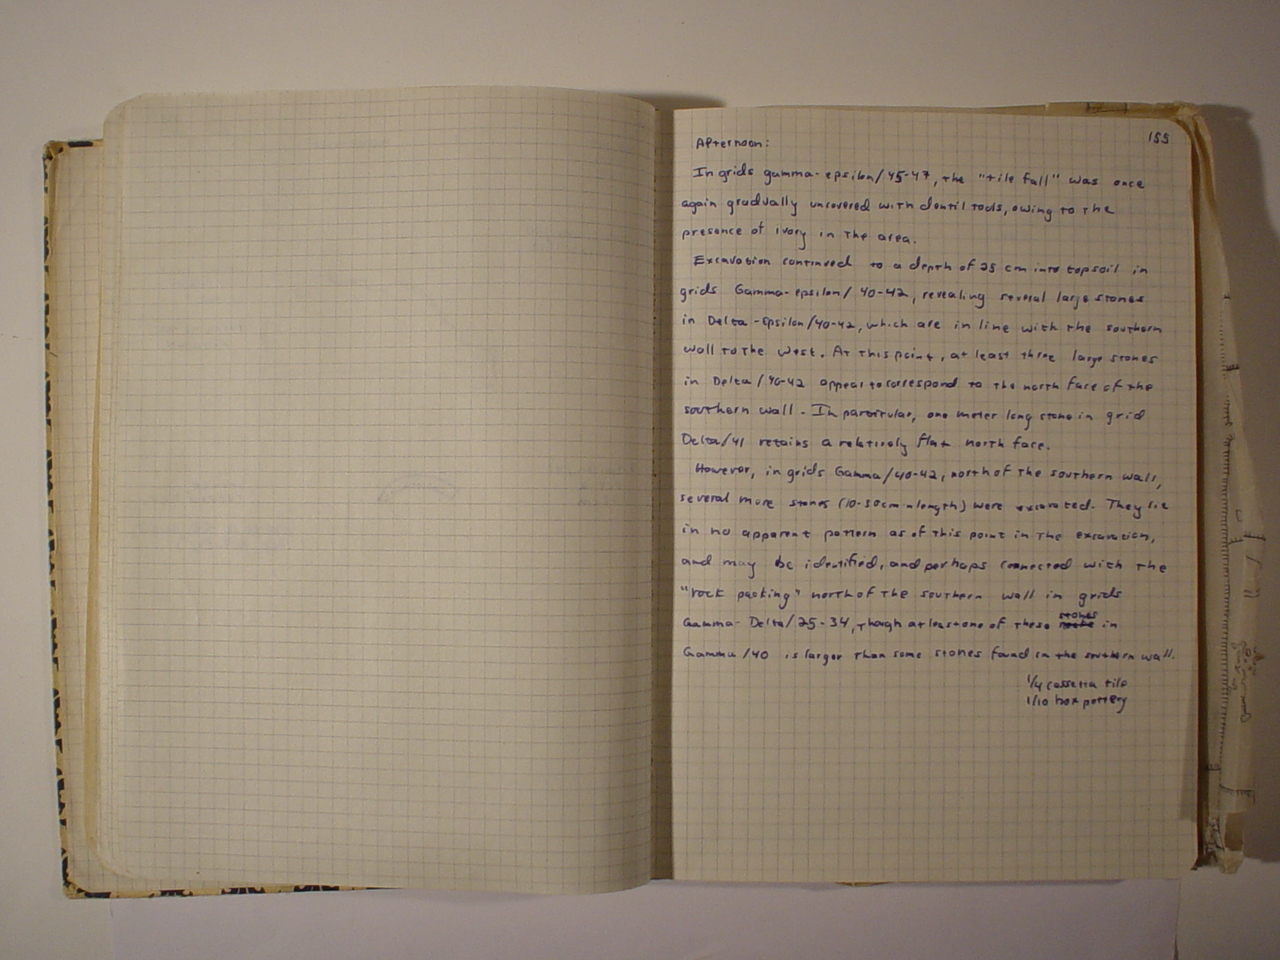 155
Afternoon:
In grids gamma-epsilon/45-47, the "tile fall" was once
again gradually uncovered with dentil tools, owing to the
presence of ivory in the area.
Excavation continued to a depth of 25 cm into topsoil in
grids Gamma-epsilon/40-42, revealing several large stones
in Delta-Epsilon/40-42, which are in line with the southern
wall to the west. At this point, at least three large stones
in Delta/40-42 appear to correspond to the north face of the
southern wall - In particular, one meter long stone in grid
Delta/41 retains a relatively flat north face.
However, in grids Gamma/40-42, north of the southern wall,
several more stones (10-50cm in length) were excavated. They lie
in no apparent pattern as of this point in the excavation,
and may be identified, and perhaps connected with the
"rock packing" north of the southern wall in grids
Gamma-Delta/25-34, though at least one of these stones in
Gamma/40 is larger than some stones found in the southern wall.
1/4 cassetta tile
1/10 box pottery